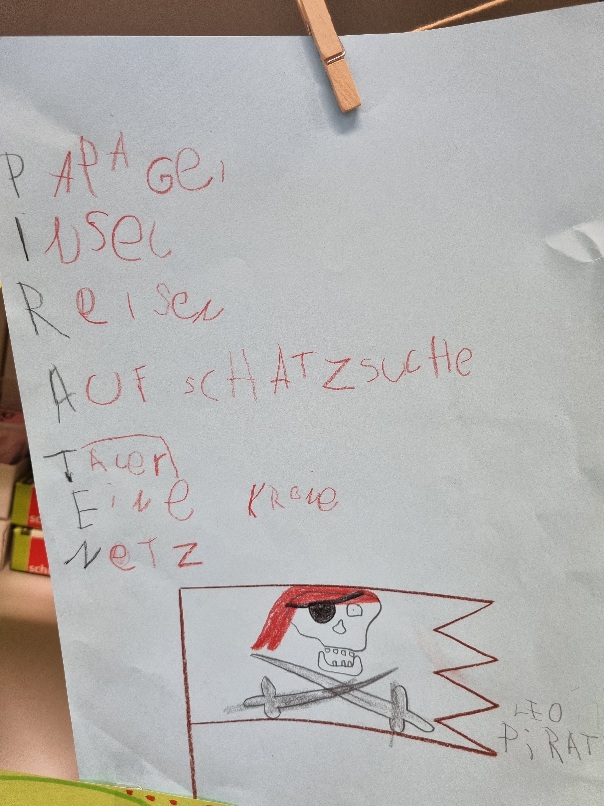 PAPAGei
INSEL
ReiSeN
AUF SCHATZSUCHe
TALer
EiNe KRONe
NeTZ
LEO
PiRAT